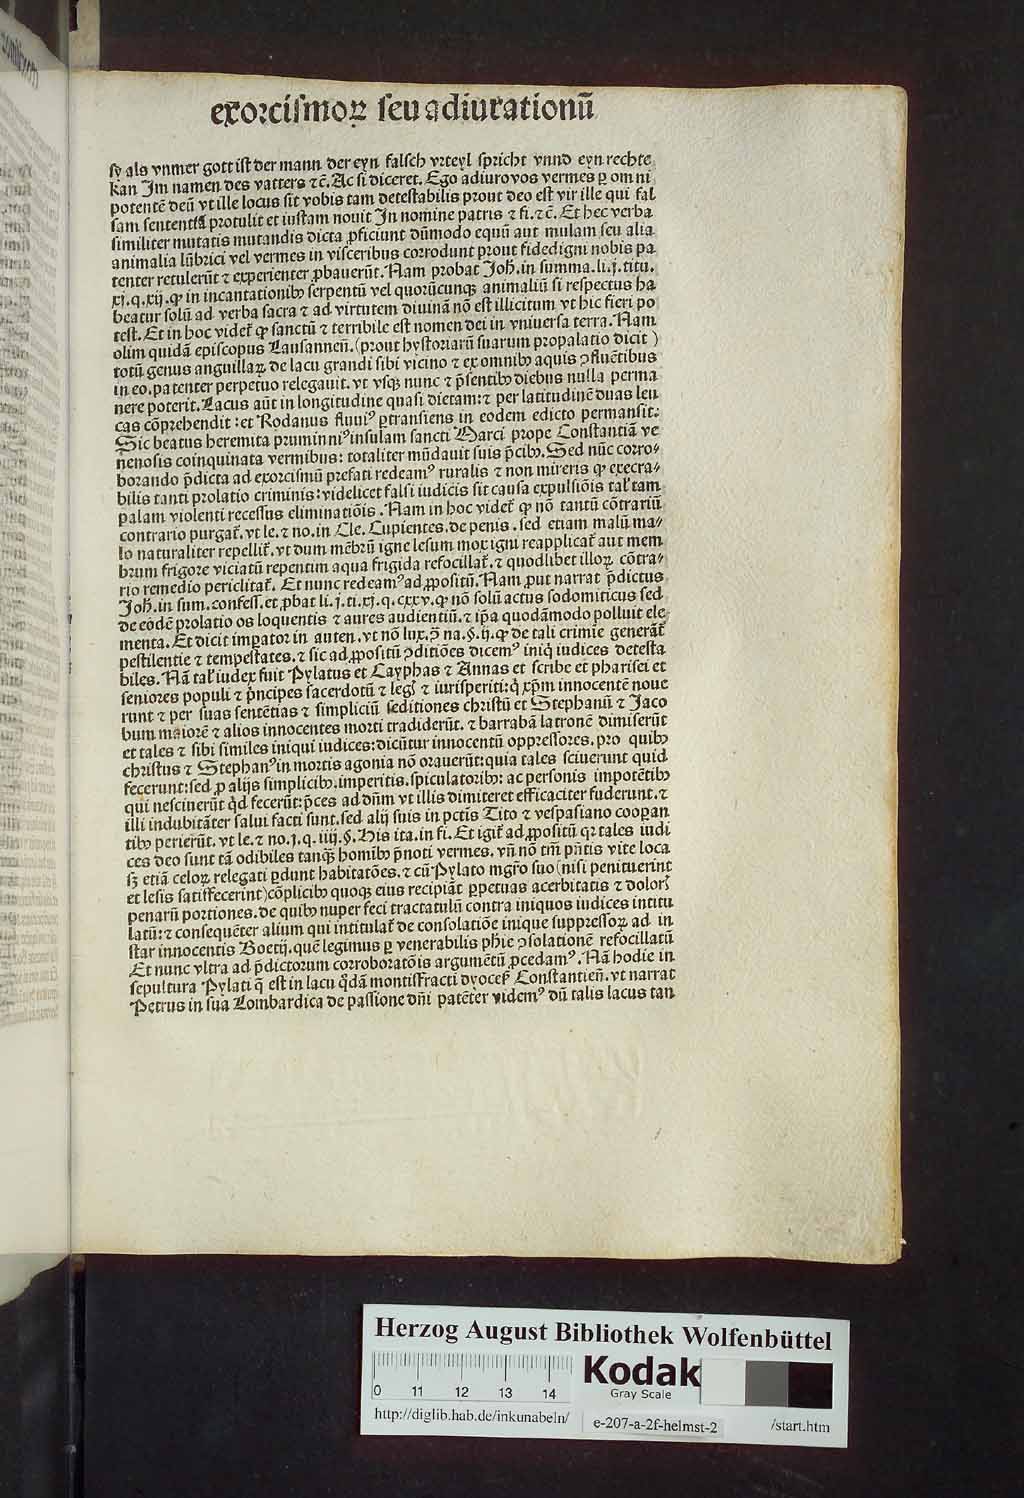 exorcismoꝝ seu adiurationū
sy als vnmer gott ist der mann der eyn falsch vrteyl spricht vnnd eyn rechte
kan Im namen des vatters ⁊c̄. Ac si diceret. Ego adiuro vos vermes ꝑ omni
potentē deū vt ille locus sit vobis tam detestabilis prout deo est vir ille qui fal
sam sententiā protulit et iustam nouit In nomine patris ⁊ fi. ⁊c̄. Et hec verba
similiter mutatis mutandis dicta ꝓficiunt dūmodo equū aut mulam seu alia
animalia lūbrici vel vermes in visceribus corrodunt prout fidedigni nobis pa
tenter retulerūt ⁊ experienter ꝓbauerūt. Nam probat Joh̄. in summa. li. j. titu.
xj. q. xij. ꝙ in incantationibꝰ serpentū vel quorūcunqꝫ animaliū si respectus ha
beatur solū ad verba sacra ⁊ ad virtutem diuinā nō est illicitum vt hic fieri po
test. Et in hoc videt̄ ꝙ sanctū ⁊ terribile est nomen dei in vniuersa terra. Nam
olim quidā episcopus Lausanneñ. (prout hystoriarū suarum propalatio dicit)
totū genus anguillaꝝ de lacu grandi sibi vicino ⁊ ex omnibꝰ aquis ꝯfluētibus
in eo. patenter perpetuo relegauit. vt vsqꝫ nunc ⁊ p̄sentibꝰ diebus nulla perma
nere poterit. Lacus aūt in longitudine quasi dietam: ⁊ per latitudinē duas leu
cas cōprehendit: et Rodanus fluuiꝰ ꝑtransiens in eodem edicto permansit:
Sic beatus heremita priminniꝰ insulam sancti Marci prope Constantiā ve
nenosis coinquinata vermibus: totaliter mūdauit suis p̄cibꝰ. Sed nūc corro⸗
borando p̄dicta ad exorcismū prefati redeamꝰ ruralis ⁊ non mireris ꝙ execra⸗
bilis tanti prolatio criminis: videlicet falsi iudicis sit causa expulsiōis tal̄ tam
palam violenti recessus eliminatiōis. Nam in hoc videt̄ ꝙ nō tantū cōtrariū
contrario purgat̄. vt le. ⁊ no. in Cle. Cupientes. de penis. sed etiam malū ma⸗
lo naturaliter repellit̄. vt dum mēbrū igne lesum mox igni reapplicat̄ aut mem
brum frigore viciatū repentim aqua frigida refocillat̄. ⁊ quodlibet illoꝝ cōtra⸗
rio remedio periclitat̄. Et nunc redeamꝰ ad ꝓpositū. Nam ꝓut narrat p̄dictus
Joh̄. in sum. confess. et ꝓbat li. j. ti. xj. q. cxxv. ꝙ nō solū actus sodomiticus sed
de eodē prolatio os loquentis ⁊ aures audientiū. ⁊ ip̄a quodāmodo polluit ele
menta. Et dicit imꝑator in auten. vt nō lux. ꝯ̄ na. §. ij. ꝙ de tali crimie generāt̄
pestilentie ⁊ tempestates. ⁊ sic ad ꝓpositū ꝯditiōes dicemꝰ iniqͥ iudices detesta
biles. Nā tal̄ iudex fuit Pylatus et Cayphas ⁊ Annas et scribe et pharisei et
seniores populi ⁊ pͥncipes sacerdotū ⁊ legꝭ ⁊ iurisperiti: qͥ xp̄m innocentē noue
runt ⁊ per suas sentētias ⁊ simpliciū seditiones christū et Stephanū ⁊ Jaco
bum maiorē ⁊ alios innocentes morti tradiderūt. ⁊ barrabā latronē dimiserūt
et tales ⁊ sibi similes iniqui iudices: dicūtur innocentū oppressores. pro quibꝰ
christus ⁊ Stephanꝰ in mortis agonia nō orauerūt: quia tales sciuerunt quid
fecerunt: sed ꝓ alijs simplicibꝰ. imperitis. spiculatoribꝰ: ac personis impotētibꝰ
qui nescinerūt qͥd fecerūt: p̄ces ad dūm vt illis dimiteret efficaciter fuderunt. ⁊
illi indubitāter salui facti sunt. sed alij suis in pctis Tito ⁊ vespasiano cooꝑan
tibꝰ perierūt. vt le. ⁊ no. j. q. iiij. §. His ita. in fi. Et igit̄ ad ꝓpositū qꝛ tales iudi
ces deo sunt tā odibiles tanqꝫ homībꝰ p̄noti vermes. vn̄ nō tm̄ pn̄tis vite loca
sꝫ etiā celoꝝ relegati ꝑdunt habitatōes. ⁊ cū Pylato mgr̄o suo (nisi penituerint
et lesis satiffecerint) cōplicibꝰ quoqꝫ eius recipiāt ꝑpetuas acerbitatis ⁊ dolorꝭ
penarū portiones. de quibꝰ nuper feci tractatulū contra iniquos iudices intitu
latū: ⁊ consequēter alium qui intitulat̄ de consolatiōe inique suppressoꝝ ad in
star innocentis Boetij. quē legimus ꝑ venerabilis ph̄ie ꝯsolationē refocillatū
Et nunc vltra ad p̄dictorum corroboratōis argumētū ꝓcedamꝰ. Nā hodie in
sepultura Pylati q̄ est in lacu qͥdā montisfracti dyocesꝭ Constantieñ. vt narrat
Petrus in sua Lombardica de passione dn̄i patēter videmꝰ dū talis lacus tan
Herzog August Bibliothek Wolfenbüttel
0 11 12 13 14
Kodak
Gray Scale
http://diglib.hab.de/inkunabeln/ e-207-a-2f-helmst-2 /start.htm